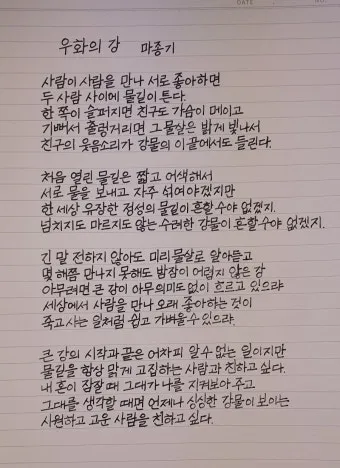 DATE
NO.
우화의 강 마종기
사람이 사람을 만나 서로 좋아하면
두 사람 사이에 물길이 튼다.
한 쪽이 슬퍼지면 친구도 가슴이 메이고
기뻐서 출렁거리면 그 물살은 밝게 빛나서
친구의 웃음소리가 강물의 이 끝에서도 들린다.
처음 열린 물길은 짧고 어색해서
서로 물을 보내고 자주 섞여야겠지만
한 세상 유장한 정성의 물길이 흔할 수야 없겠지.
넘치지도 마르지도 않는 수려한 강물이 흔할 수야 없겠지.
긴 말 전하지 않아도 미리 물살로 알아듣고
몇 해쯤 만나지 못해도 밤잠이 어렵지 않은 강
아무려면 큰 강이 아무 의미도 없이 흐르고 있으랴
세상에서 사람을 만나 오래 좋아하는 것이
죽고 사는 일처럼 쉽고 가벼울 수 있으랴.
큰 강의 시작과 끝은 어차피 알 수 없는 일이지만
물길을 항상 맑게 고집하는 사람과 친하고 싶다.
내 혼이 잠잘 때 그대가 나를 지켜보아 주고
그대를 생각할 때면 언제나 싱싱한 강물이 보이는
시원하고 고운 사람을 친하고 싶다.